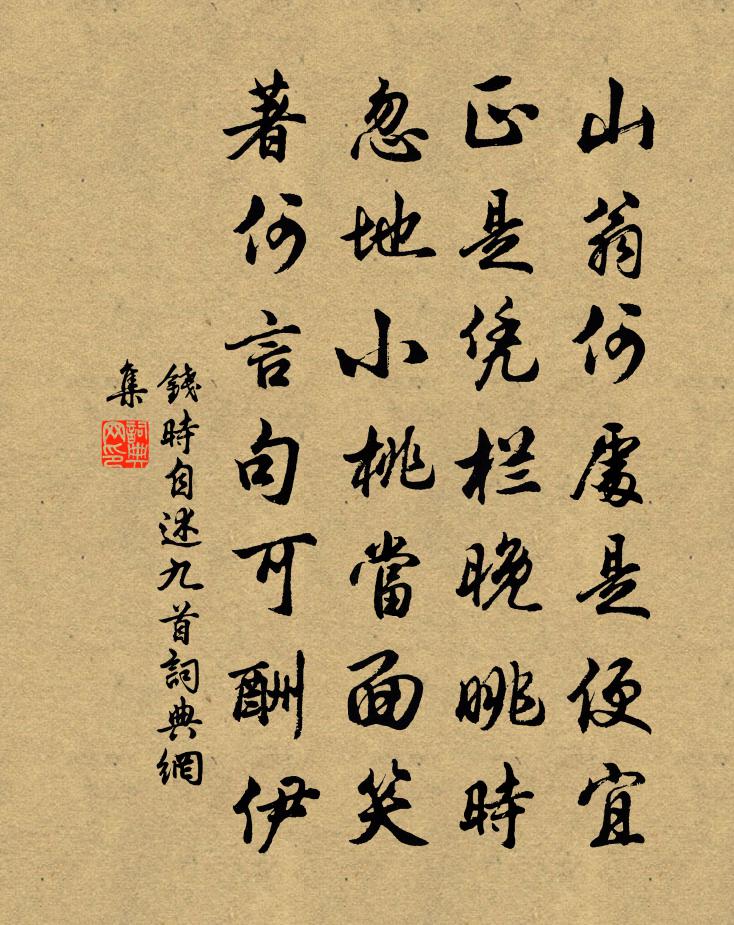 山翁何處是便宜
正是凭栏晚眺時
忽地小桃當面笑
著何言句可酬伊
錢時自述九首詞典網
集
詞典
网印